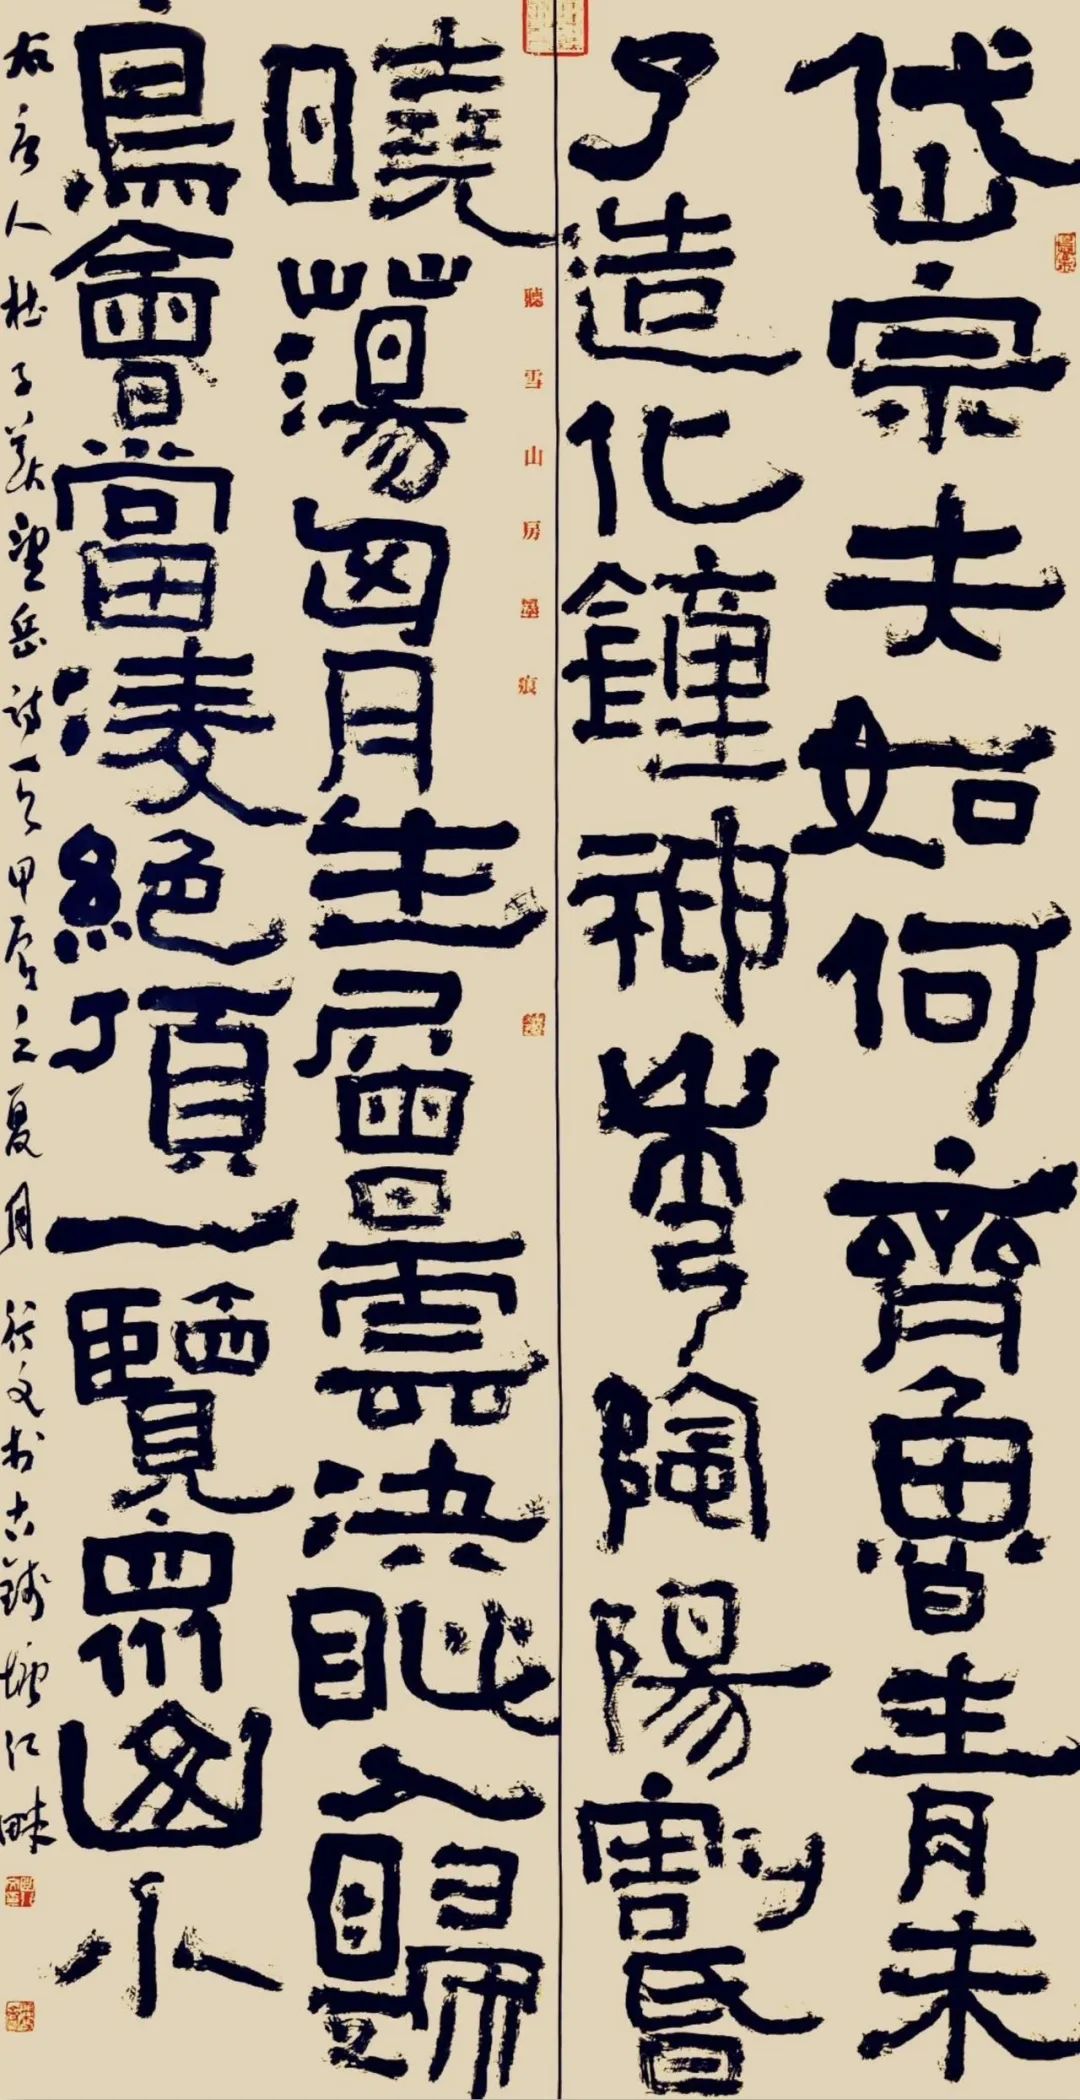 岱宗夫如何齊魯青未
了造化鍾神秀陰陽割昏
曉盪匈月生層雲決眦入歸
鳥會當凌絕頂一覽眾山小
右唐人杜子美望岳詩一首甲辰之夏月行文於古錢塘江畔
聽雪山房墨痕